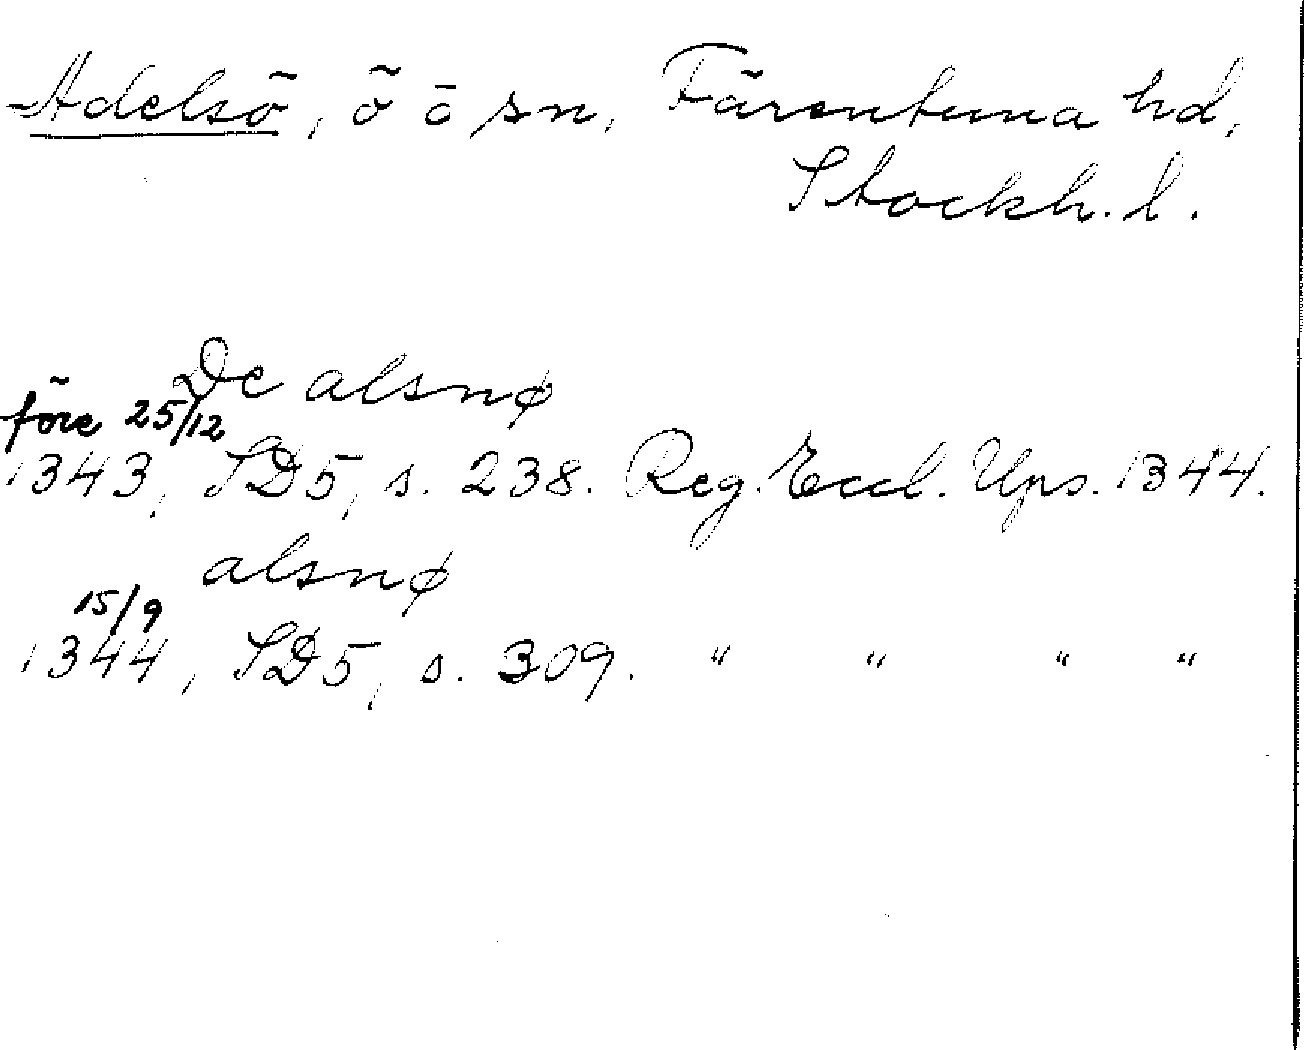 Adelsö, ö o sn, Färentuna hd,
Stockh. l.
De alsnø
före 25/12
1343, SD5, s. 238. Reg. Eccl. Ups. 1344.
alsnø
15/9
1344, SD5, s. 309. " " " "